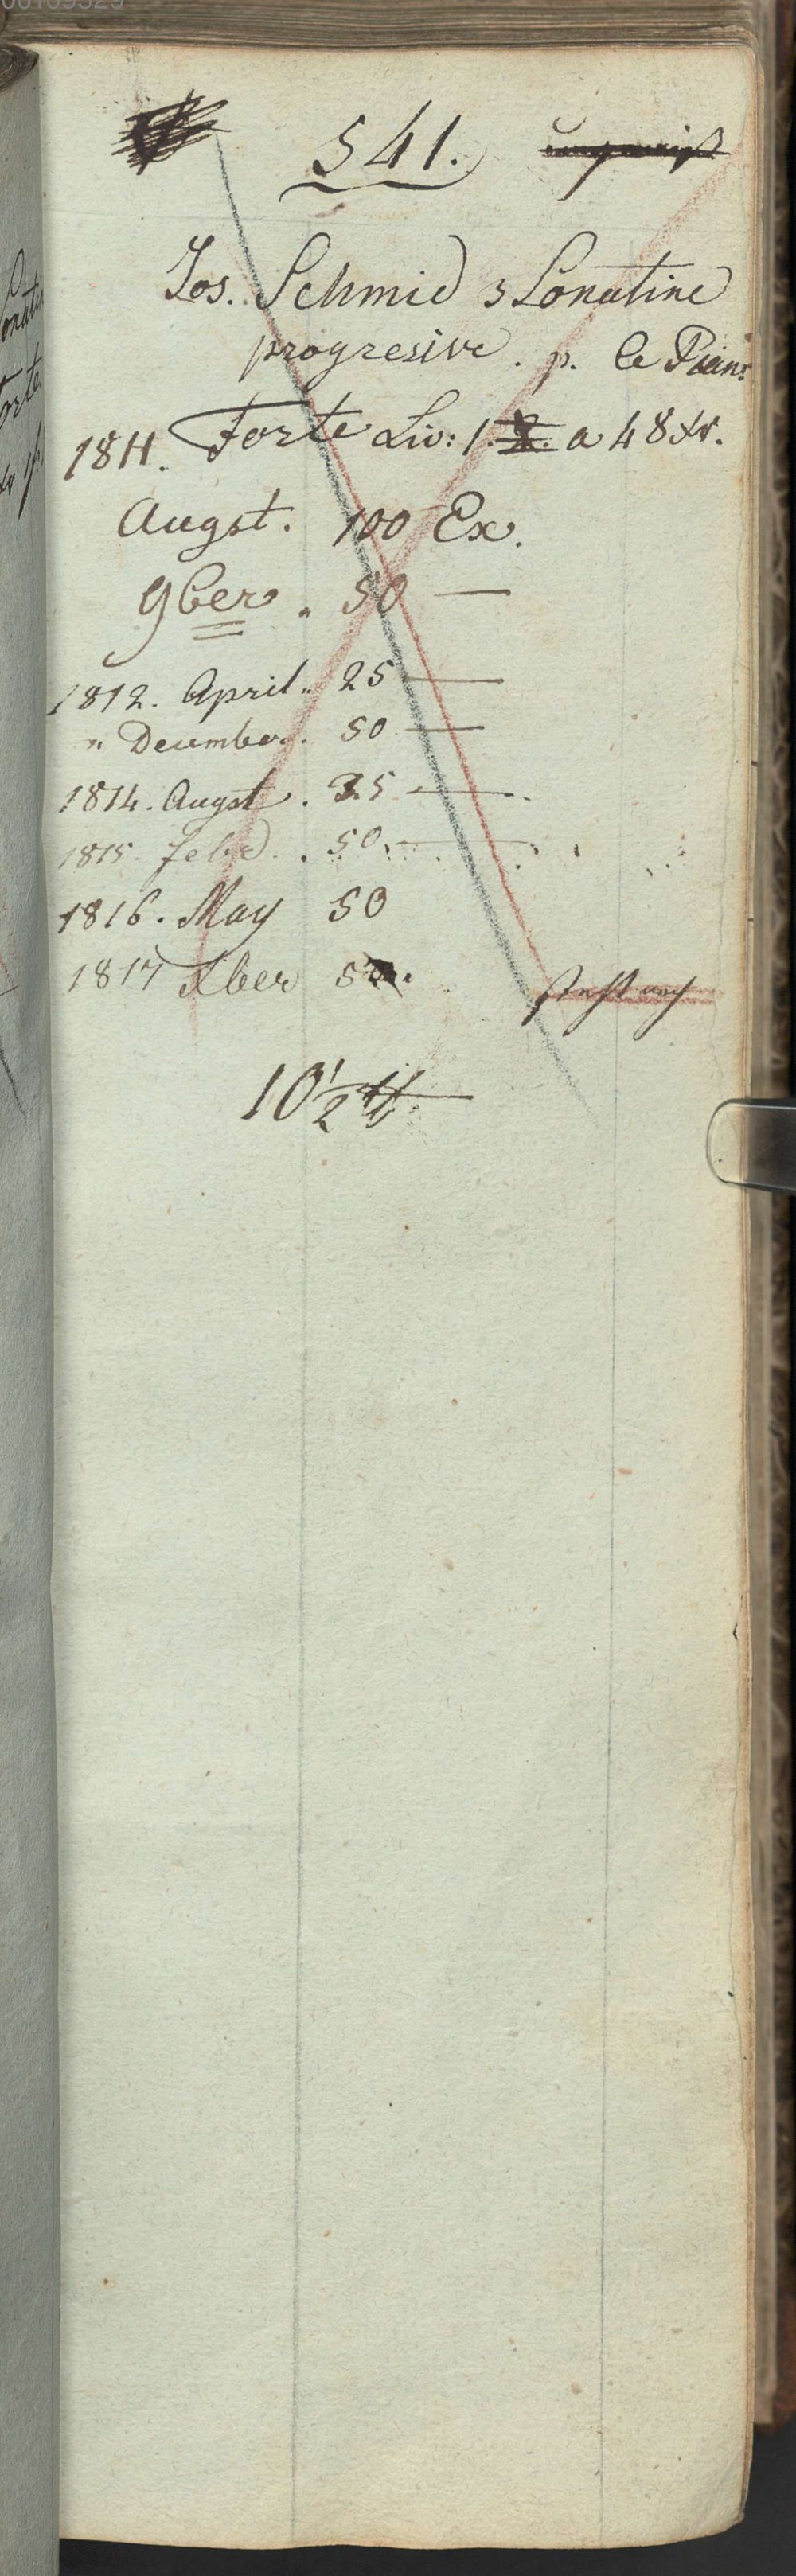 541.
Jos. Schmid 3 Sonatine
progresive. p. le Piano
1811. Forte Liv: 1. 2. a 48 Xr.
Augst. 100 Ex.
9ber. 50 —
1812. April. 25 —
" December. 50 —
1814. Augst. 35 —
1815. Feb. 50. —
1816. May 50
1817 Xber 50.
steht noch
10 1/2 ℔